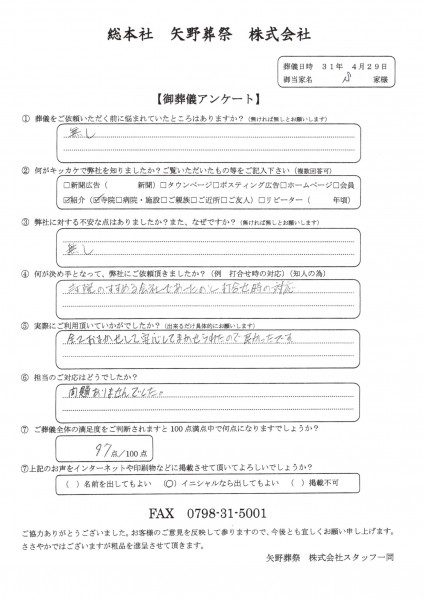 総本社　矢野葬祭　株式会社
葬儀日時　31年　4月29日
御当家名　家様
【御葬儀アンケート】
① 葬儀をご依頼いただく前に悩まれていたところはありますか？（無ければ無しとお願いします）
無し
② 何がキッカケで弊社を知りましたか？ご覧いただいたもの等をご記入下さい（複数回答可）
□新聞広告（　　　新聞）□タウンページ□ポスティング広告□ホームページ□会員
☑紹介（☑寺院□病院・施設□ご親族□ご近所□ご友人）□リピーター（　　　年頃）
③ 弊社に対する不安な点はありましたか？また、なぜですか？（無ければ無しとお願いします）
無し
④ 何が決め手となって、弊社にご依頼頂きましたか？（例　打合せ時の対応）（知人の為）
のすすめる会社であったのと打合せ時の対応
⑤ 実際にご利用頂いていかがでしたか？（出来るだけ具体的にお願いします）
全ておまかせして安心してまかせられたので良かったです
⑥ 担当のご対応はどうでしたか？
問題ありませんでした。
⑦ ご葬儀全体の満足度をご判断されますと100点満点中で何点になりますでしょうか？
97点/100点
⑦上記のお声をインターネットや印刷物などに掲載させて頂いてよろしいでしょうか？
（　）名前を出してもよい　（○）イニシャルなら出してもよい　（　）掲載不可
FAX　0798-31-5001
ご協力ありがとうございました。お客様のご意見を反映して参りますので、今後とも宜しくお願い申し上げます。
ささやかではございますが粗品を進呈させて頂きます。
矢野葬祭　株式会社スタッフ一同